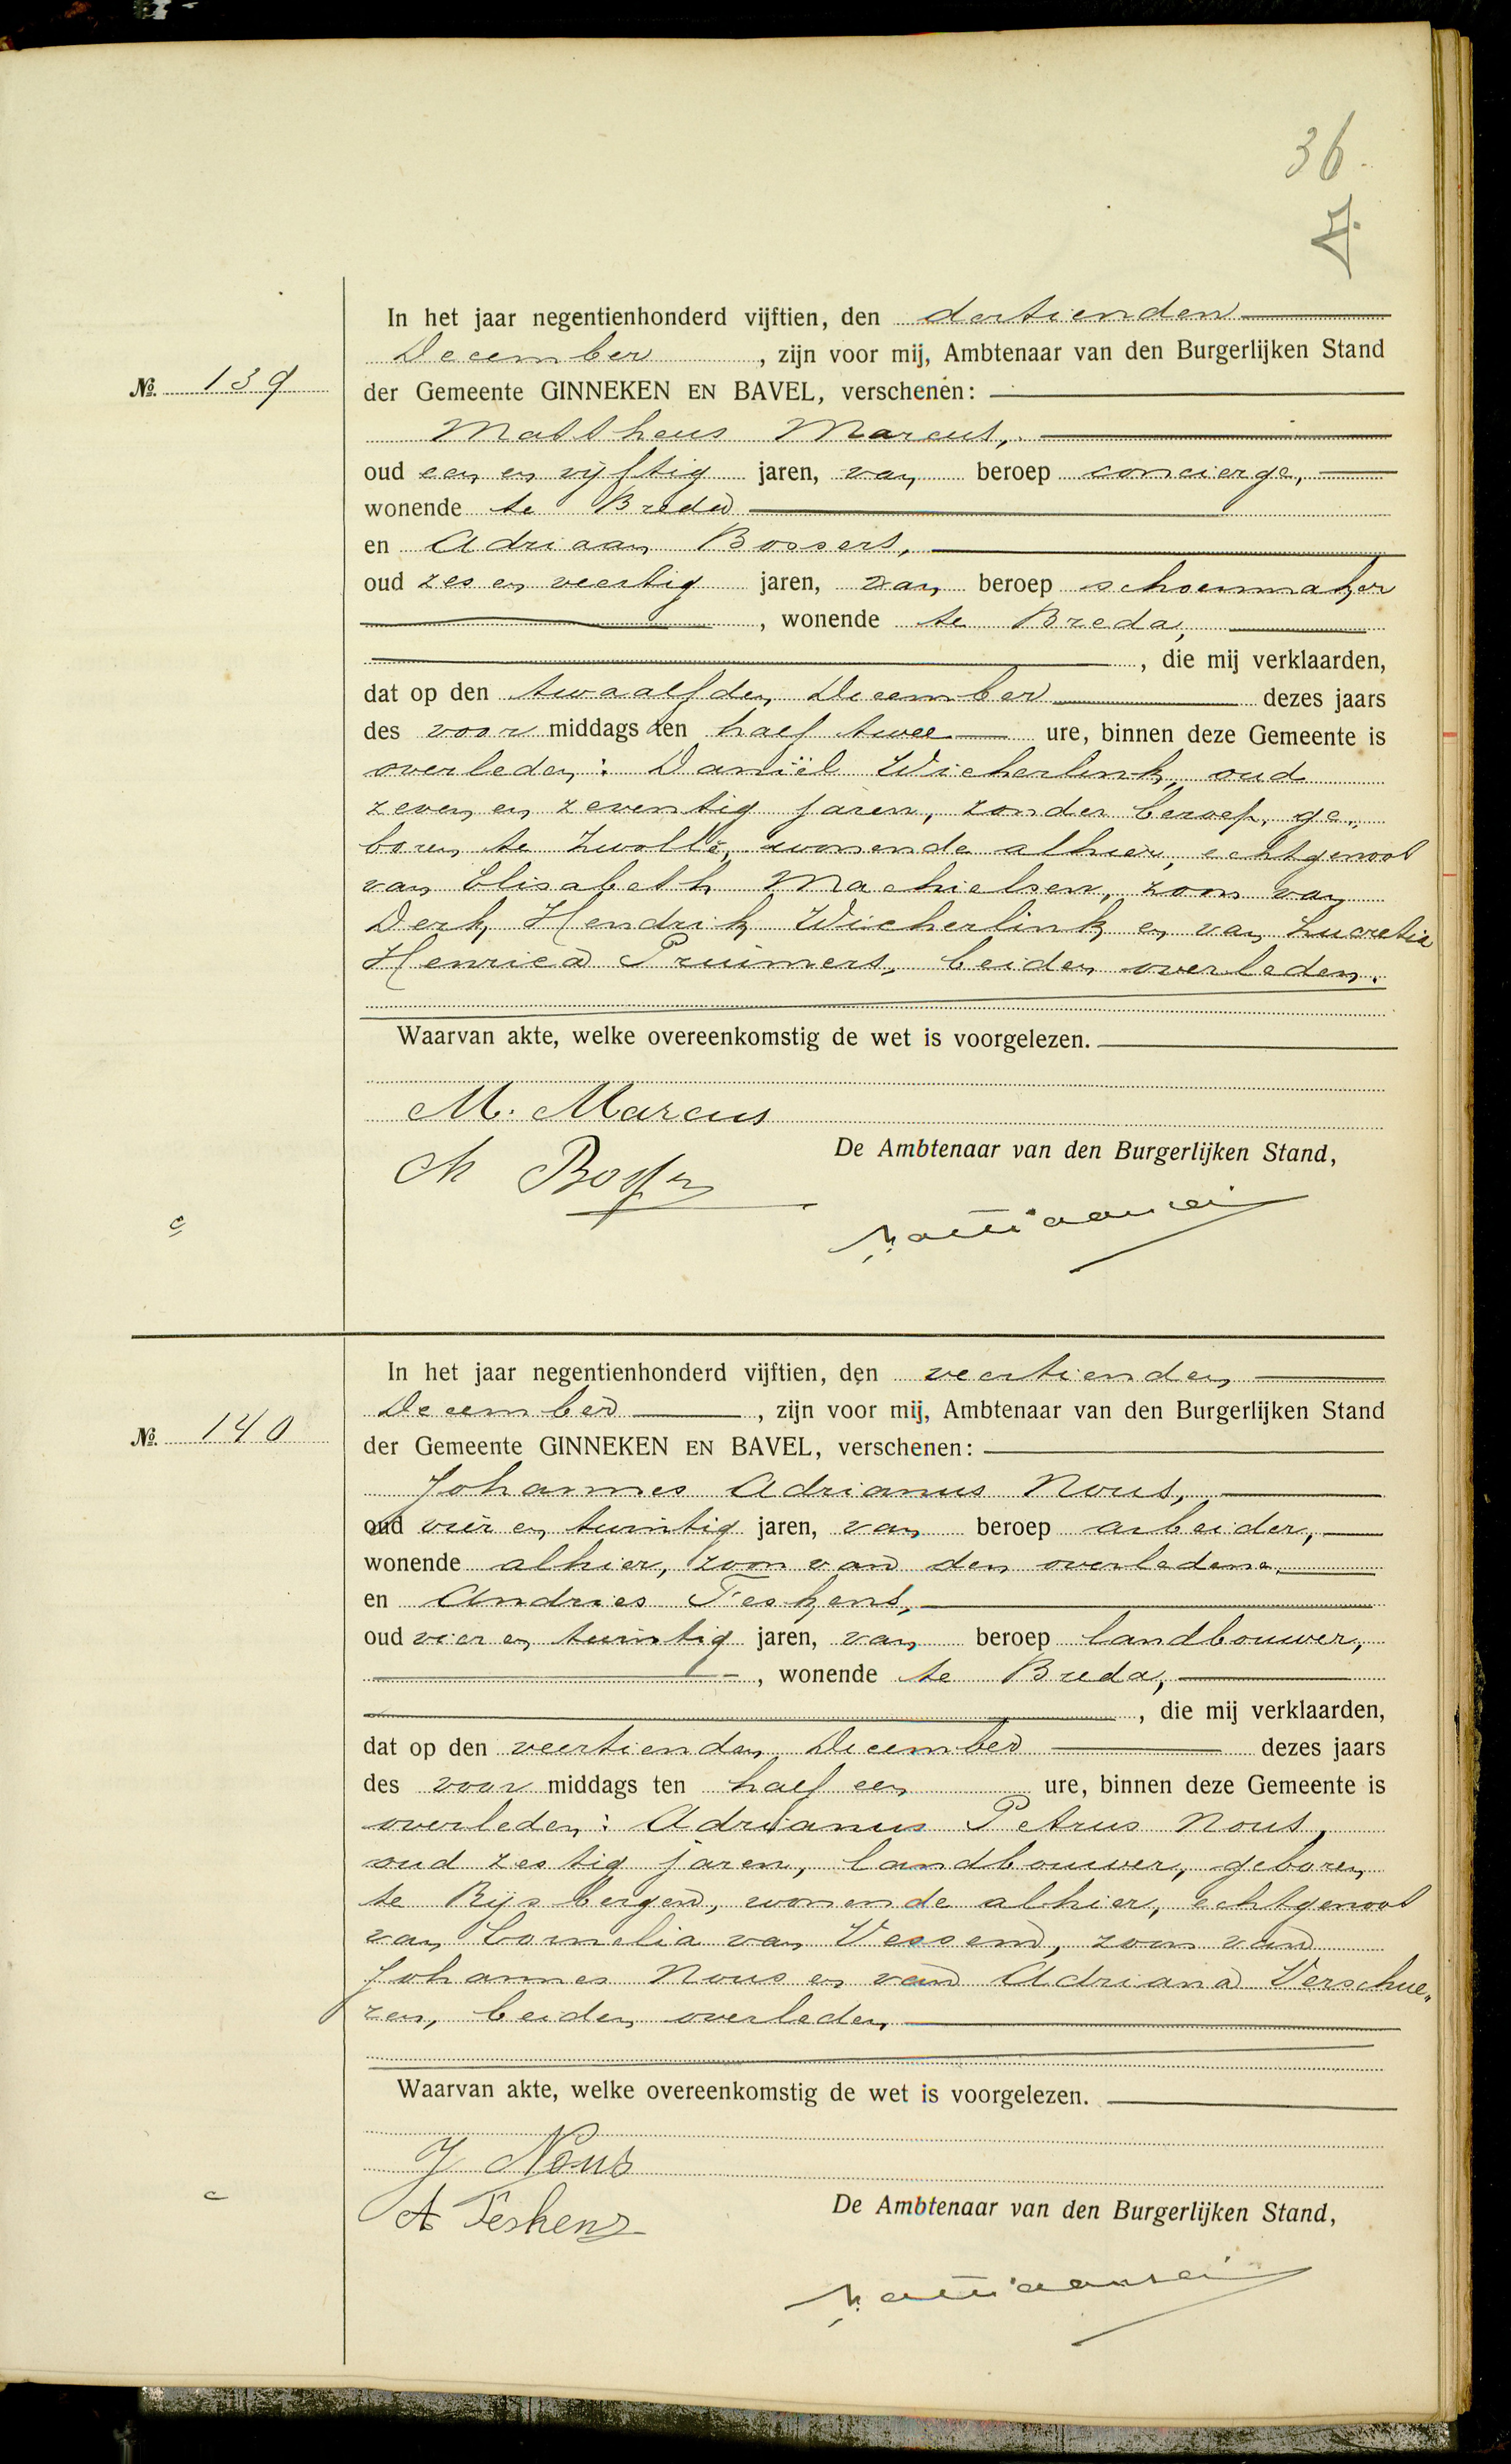 36.
In het jaar negentienhonderd vijftien, den dertienden
December, zijn voor mij, Ambtenaar van den Burgerlijken Stand
№. 139
der Gemeente GINNEKEN EN BAVEL, verschenen:
Mattheus Marcus,
oud een en vijftig jaren, van beroep concierge,
wonende te Breda
en Adriaan Bossers,
oud zes en veertig jaren, van beroep schoenmaker
, wonende te Breda,
, die mij verklaarden,
dat op den twaalfden December dezes jaars
des voor middags ten half twee ure, binnen deze Gemeente is
overleden: Daniël Wicherlink, oud
zeven en zeventig jaren, zonder beroep, ge„
boren te Zwolle, wonende alhier, echtgenoot
van Elisabeth Machielsen, zoon van
Derk Hendrik Wicherlink en van Lucretia
Henrica Pruimers, beiden overleden.
Waarvan akte, welke overeenkomstig de wet is voorgelezen.
M. Marcus
De Ambtenaar van den Burgerlijken Stand,
c
In het jaar negentienhonderd vijftien, den veertienden
December, zijn voor mij, Ambtenaar van den Burgerlijken Stand
№. 140
der Gemeente GINNEKEN EN BAVEL, verschenen:
Johannes Adrianus Nous,
oud vier en twintig jaren, van beroep arbeider,
wonende alhier, zoon van den overledene,
en Andries Feskens,
oud vier en twintig jaren, van beroep landbouwer,
, wonende te Breda,
, die mij verklaarden,
dat op den veertienden December dezes jaars
des voor middags ten half een ure, binnen deze Gemeente is
overleden: Adrianus Petrus Nous,
oud zestig jaren, landbouwer, geboren
te Rijsbergen, wonende alhier, echtgenoot
van Cornelia van Vessem, zoon van
Johannes Nous en van Adriana Verschue„
ren, beiden overleden
Waarvan akte, welke overeenkomstig de wet is voorgelezen.
J Nous
A Feskens
De Ambtenaar van den Burgerlijken Stand,
c